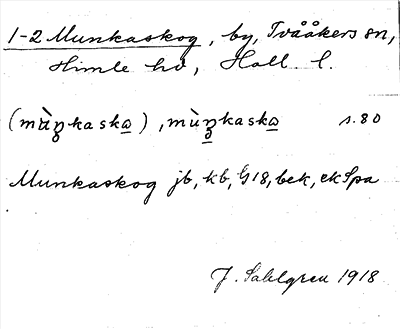 1-2 Munkaskog, by, Tvååkers sn,
Himle hd, Hall. l.
(mùŋkaska), mùŋkaska s. 80
Munkaskog jb, kb, G18, bek, ek Spa
J. Sahlgren 1918